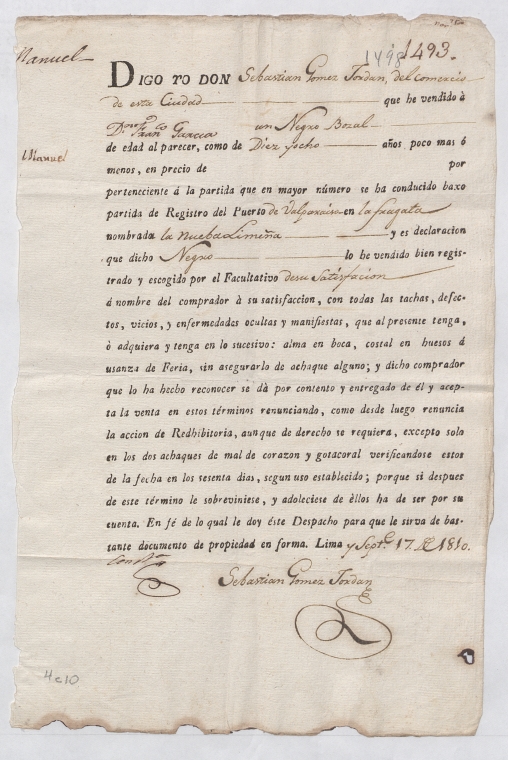 Manuel
1498 1493.
DIGO YO DON Sebastian Gomez Jordan, del comercio
de esta Ciudad que he vendido à
Dn. Franco. Garcia un Negro Bozal
Manuel
de edad al parecer, como de Diez y ocho años, poco mas ó
menos, en precio de por
perteneciente á la partida que en mayor número se ha conducido baxo
partida de Registro del Puerto de Valparaiso en la fragata
nombrada la Nueba Limeña y es declaracion
que dicho Negro lo he vendido bien regis-
trado y escogido por el Facultativo de su Satisfacion
á nombre del comprador à su satisfaccion, con todas las tachas, defec-
tos, vicios, y enfermedades ocultas y manifiestas, que al presente tenga,
ò adquiera y tenga en lo sucesivo: alma en boca, costal en huesos á
usanza de Feria, sin asegurarlo de achaque alguno; y dicho comprador
que lo ha hecho reconocer se dà por contento y entregado de él y acep-
ta la venta en estos términos renunciando, como desde luego renuncia
la accion de Redhibitoria, aunque de derecho se requiera, excepto solo
en los dos achaques de mal de corazon y gotacoral verificandose estos
de la fecha en los sesenta dias, segun uso establecido; porque si despues
de este término le sobreviniese, y adoleciese de èllos ha de ser por su
cuenta. En fé de lo qual le doy éste Despacho para que le sirva de bas-
tante documento de propiedad en forma. Lima y Septe. 17. de 1810.
Sebastian Gomez Jordan
4c10